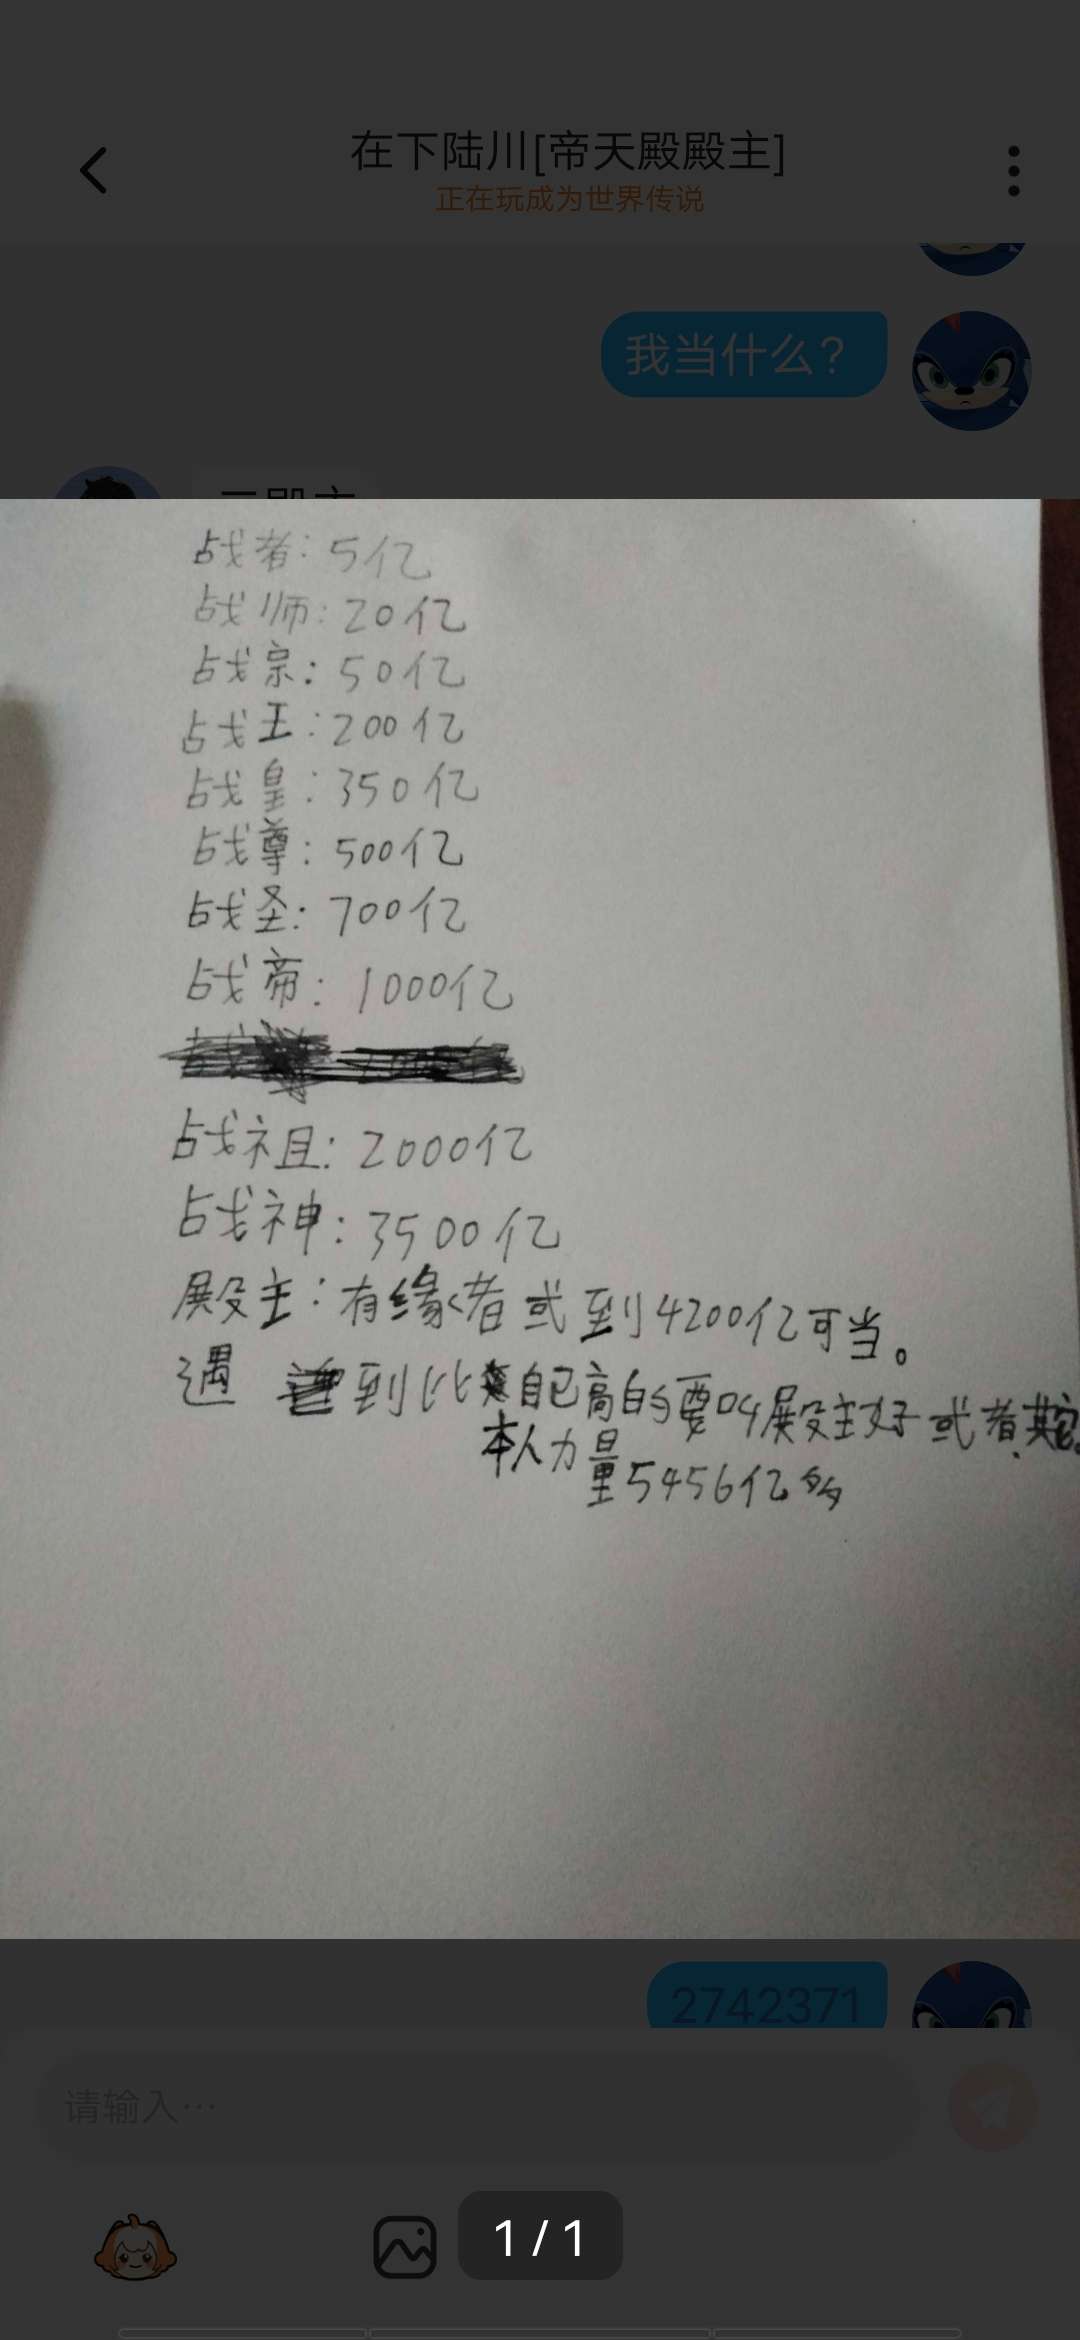 在下陆川[帝天殿殿主]
正在玩成为世界传说
我当什么？
战者：5亿
战师：20亿
战宗：50亿
战王：200亿
战皇：350亿
战尊：500亿
战圣：700亿
战帝：1000亿
战祖：2000亿
战神：3500亿
殿主：有缘者或到4200亿可当。
遇到比自己高的要叫殿主好或者其它。
本人力量5456亿多
2742371
请输入…
1 / 1